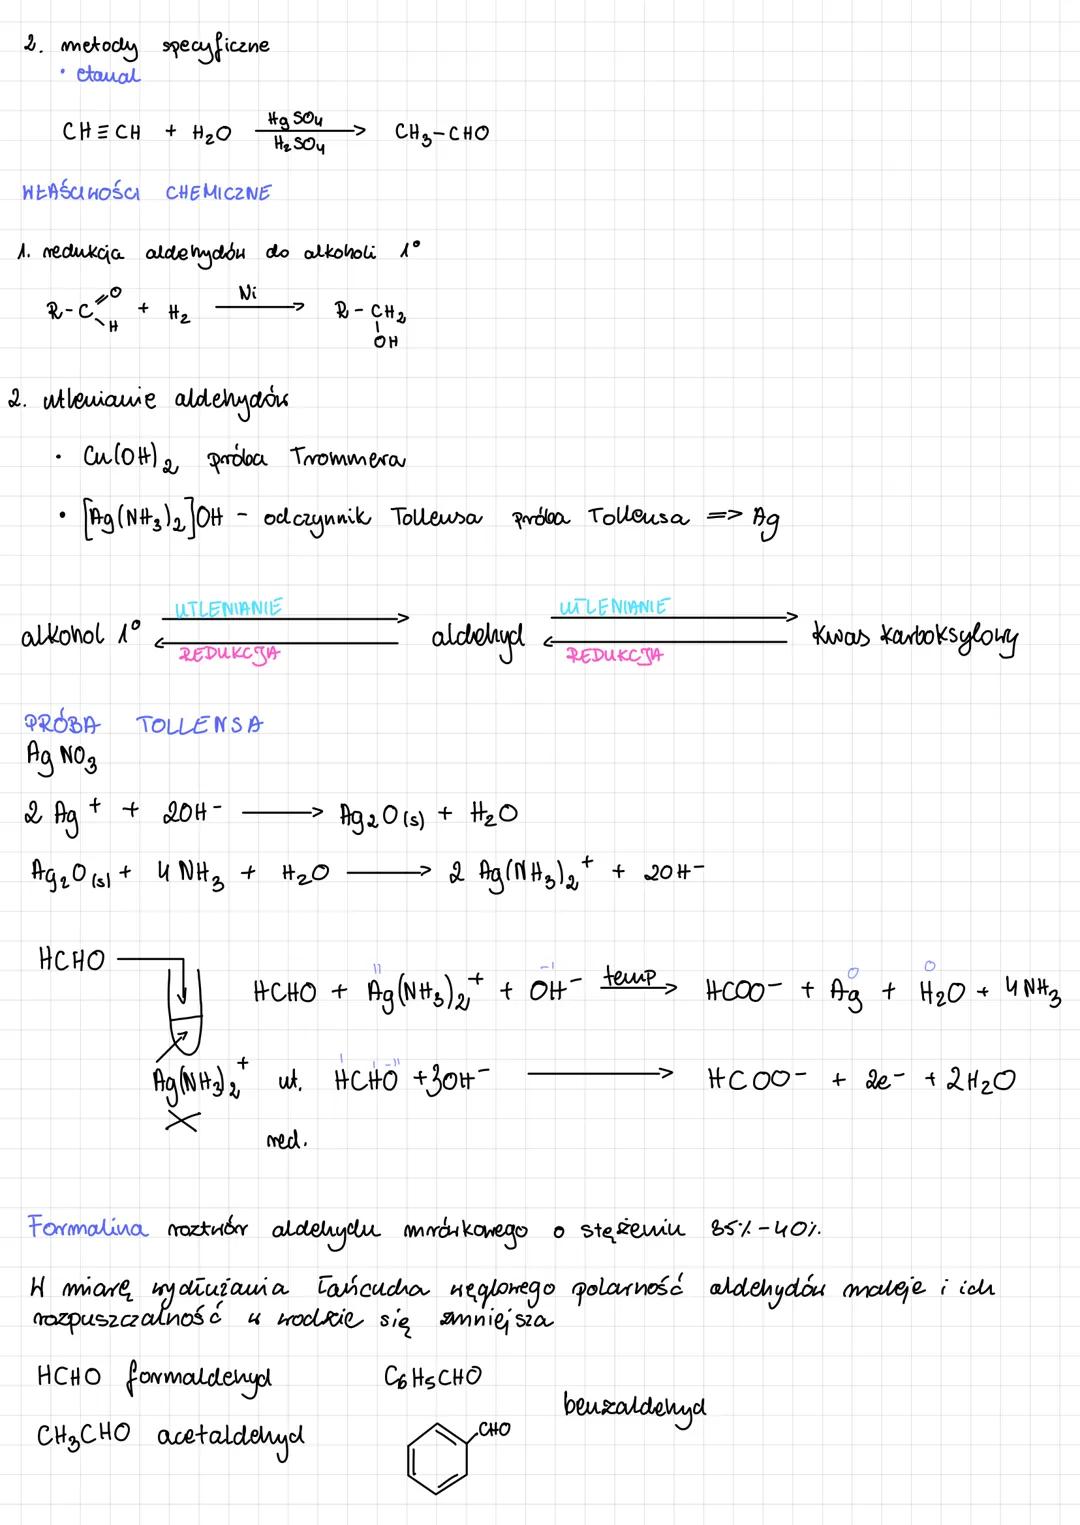 2. metody specyficzne
• etanal
CH≡CH + H₂O HgSO₄ / H₂SO₄ → CH₃-CHO
WŁAŚCIWOŚCI CHEMICZNE
1. redukcja aldehydów do alkoholi 1°
R-C=O H + H₂ Ni → R-CH₂ OH
2. utlenianie aldehydów
• Cu(OH)₂ próba Trommera
• [Ag(NH₃)₂]OH - odczynnik Tollensa próba Tollensa => Ag
UTLENIANIE UTLENIANIE
alkohol 1° aldehyd kwas karboksylowy
REDUKCJA REDUKCJA
PRÓBA TOLLENSA
AgNO₃
2 Ag⁺ + 2OH⁻ → Ag₂O(s) + H₂O
Ag₂O(s) + 4 NH₃ + H₂O → 2 Ag(NH₃)₂⁺ + 2OH⁻
HCHO
HCHO + Ag(NH₃)₂⁺ + OH⁻ temp → HCOO⁻ + Ag + H₂O + 4NH₃
Ag(NH₃)₂⁺ ut. HCHO + 3OH⁻ → HCOO⁻ + 2e⁻ + 2H₂O
red.
Formalina roztwór aldehydu mrówkowego o stężeniu 35%-40%.
W miarę wydłużania łańcucha węglowego polarność aldehydów maleje i ich
rozpuszczalność w wodzie się zmniejsza
HCHO formaldehyd C₆H₅CHO
benzaldehyd
CH₃CHO acetaldehyd CHO